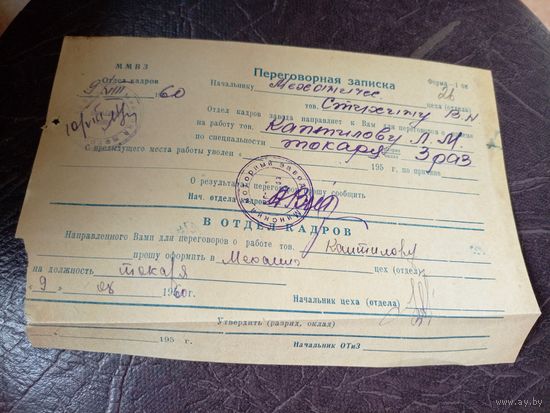 ММВЗ
Отдел кадров
9 VIII 1960
Переговорная записка
Форма—1 ок
Начальнику Механическ цеха (отдела) 26
тов. В.Н
Отдел кадров завода направляет к Вам для переговоров о приеме
на работу тов. Каптилову Л.М.
по специальности токаря 3 раз
С предыдущего места работы уволен 195 г. по причине
О результатах переговоров прошу сообщить
Нач. отдела кадров
В ОТДЕЛ КАДРОВ
Направленного Вами для переговоров о работе тов. Каптилову
прошу оформить в Механич цех (отдел)
на должность токаря
"9" 08 1960г.
Начальник цеха (отдела)
Утвердить (разряд, оклад)
195 г.
Начальник ОТиЗ
www.ay.by